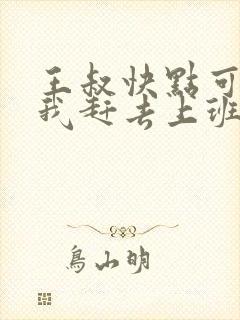 王叔快點可
我赶去上班
鳥山明